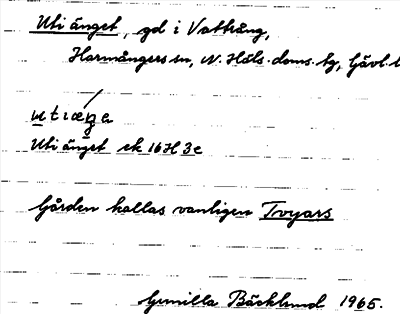 Uti änget, gd i Vattrång,
Harmångers sn, N. Häls. doms. tg, Gävl. l
utiæŋa
Uti änget ek 16H 3e
Gården kallas vanligen Tvyars
Gunilla Bäcklund 1965.